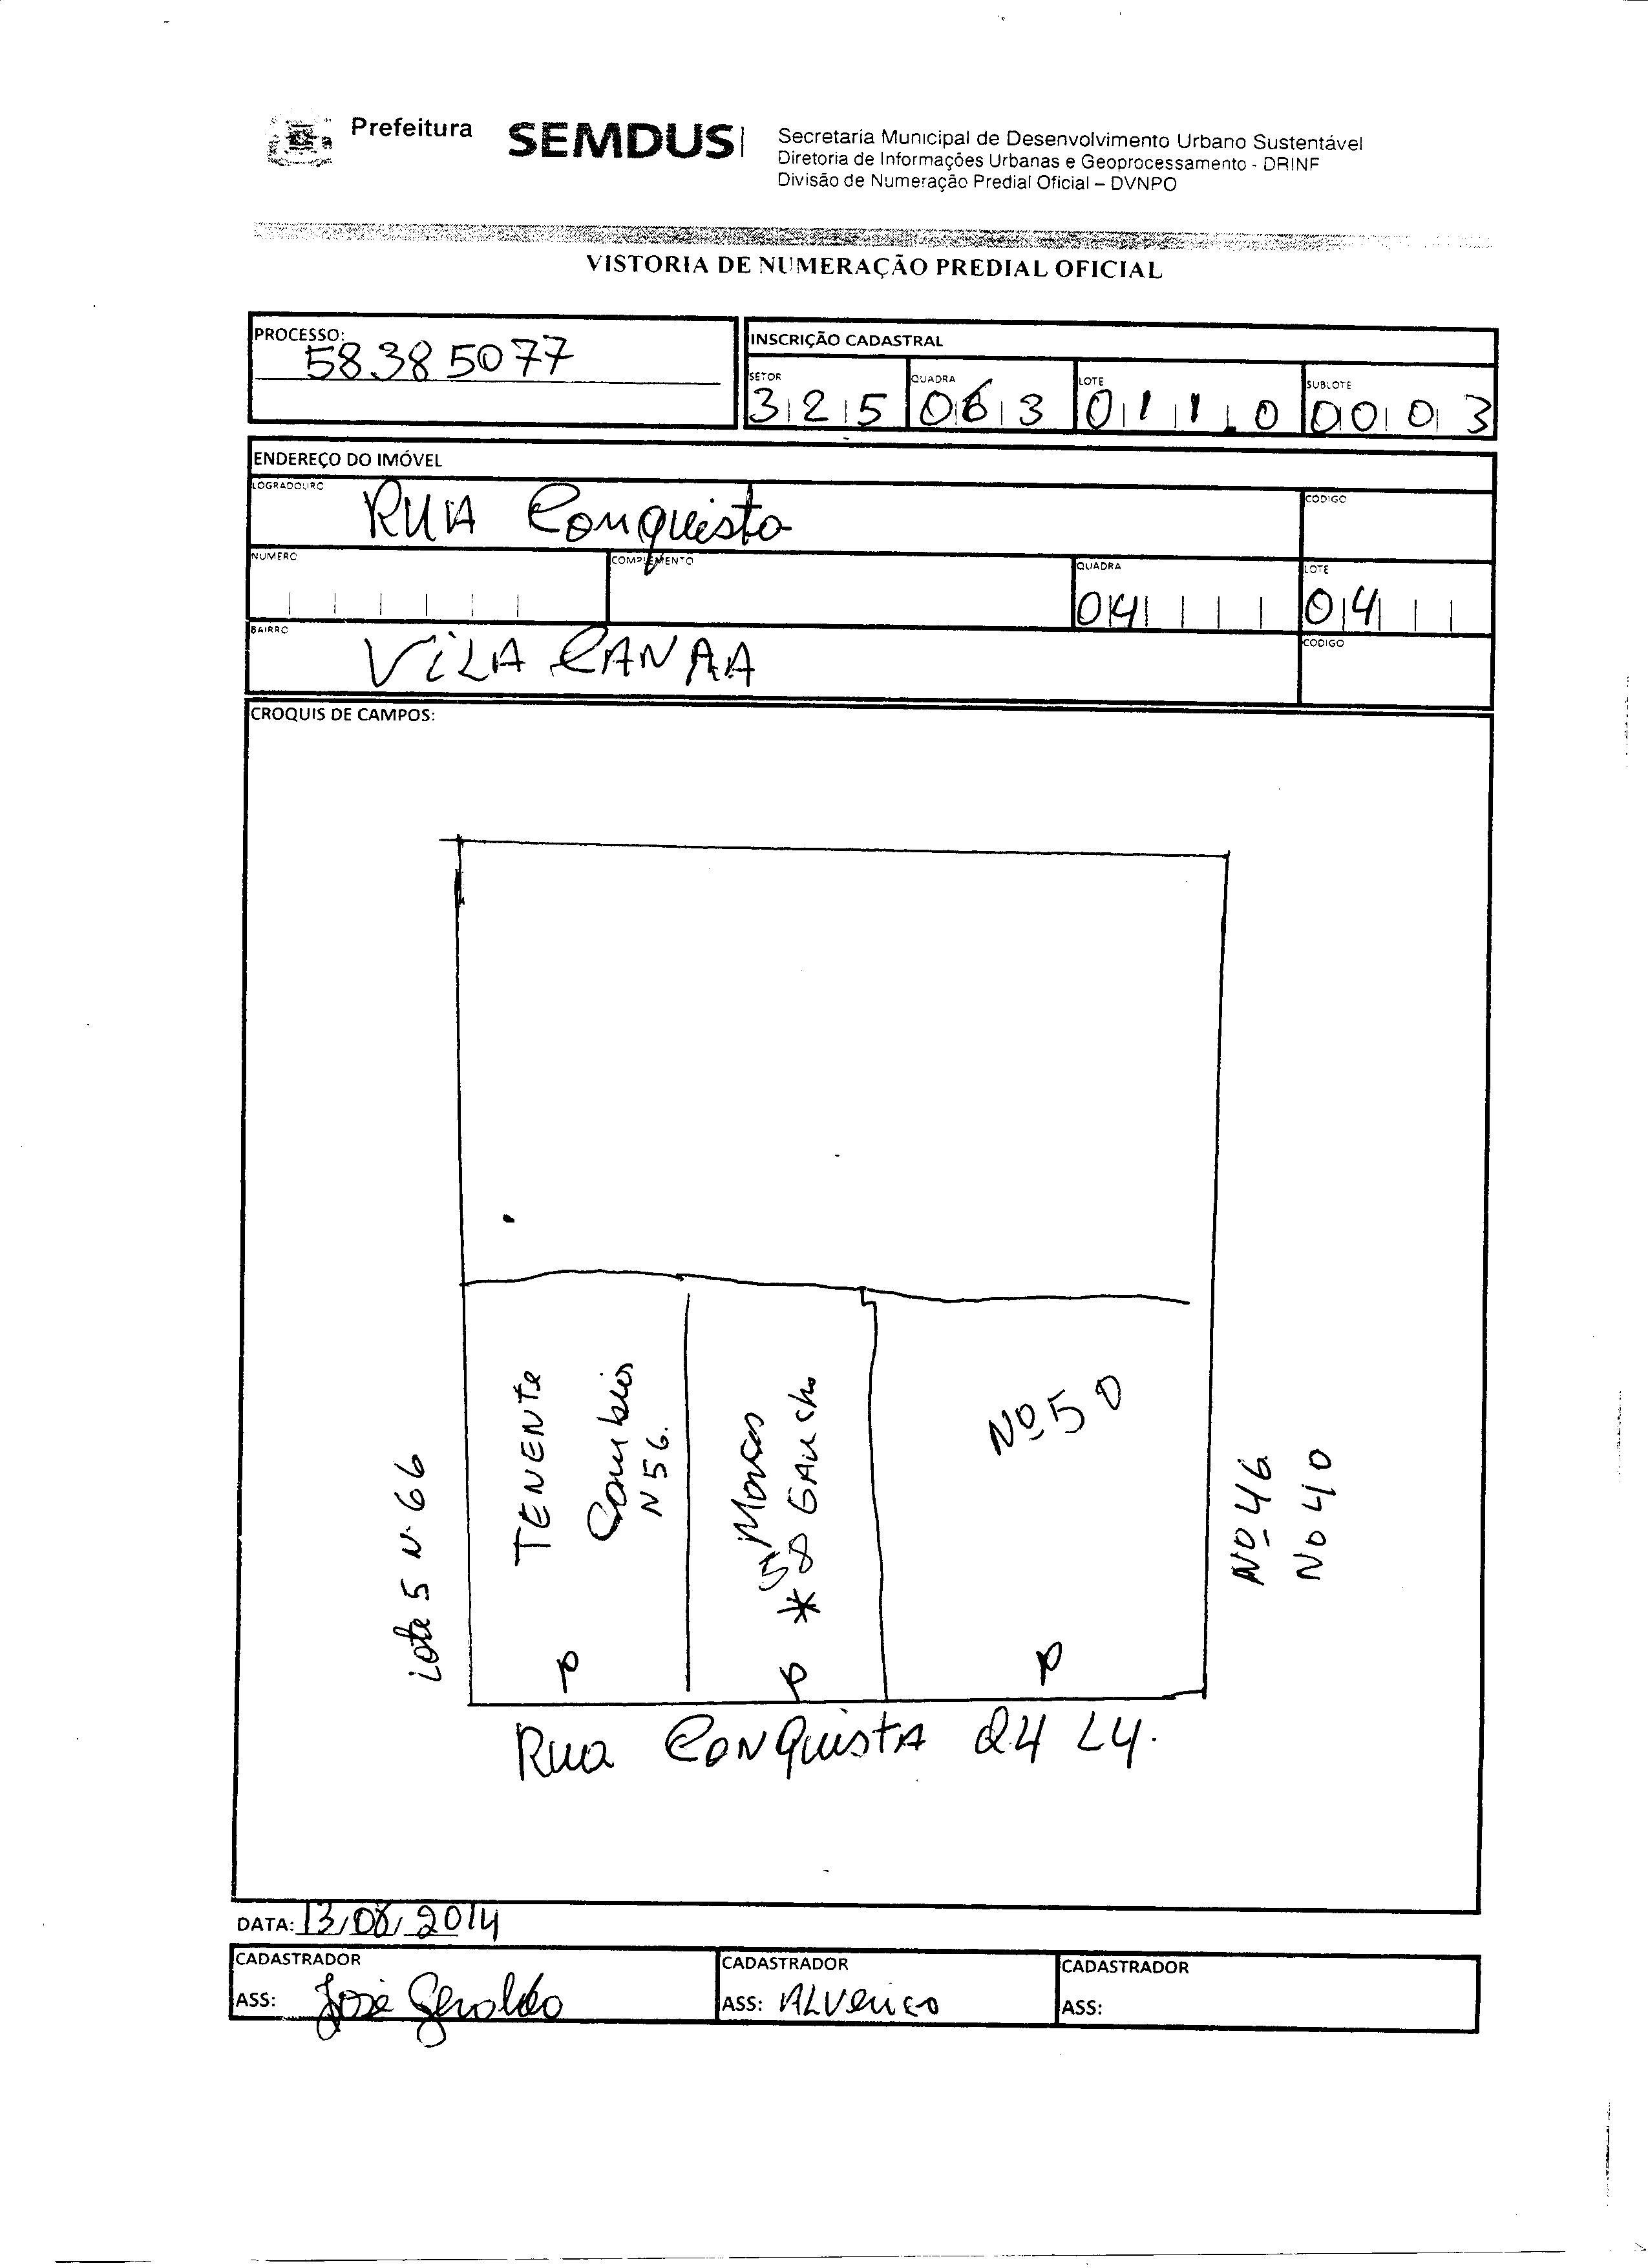 Prefeitura SEMDUS
Secretaria Municipal de Desenvolvimento Urbano Sustentável
Diretoria de Informações Urbanas e Geoprocessamento - DRINF
Divisão de Numeração Predial Oficial – DVNPO
VISTORIA DE NUMERAÇÃO PREDIAL OFICIAL
PROCESSO: 58385077
INSCRIÇÃO CADASTRAL
SETOR 325 QUADRA 063 LOTE 0110 SUBLOTE 0003
ENDEREÇO DO IMÓVEL
LOGRADOURO RUA Conquista CODIGO
NUMERO COMPLEMENTO QUADRA 04 LOTE 04
BAIRRO VILA CANAA CODIGO
CROQUIS DE CAMPOS:
Lote 5 N. 66
TENENTE
N 56.
58 GAUCHO
Nº 50
Nº 46
No 40
P P P
Rua CONQUISTA Q4 L4.
DATA: 13/08/2014
CADASTRADOR CADASTRADOR CADASTRADOR
ASS: José Geraldo ASS: ASS: